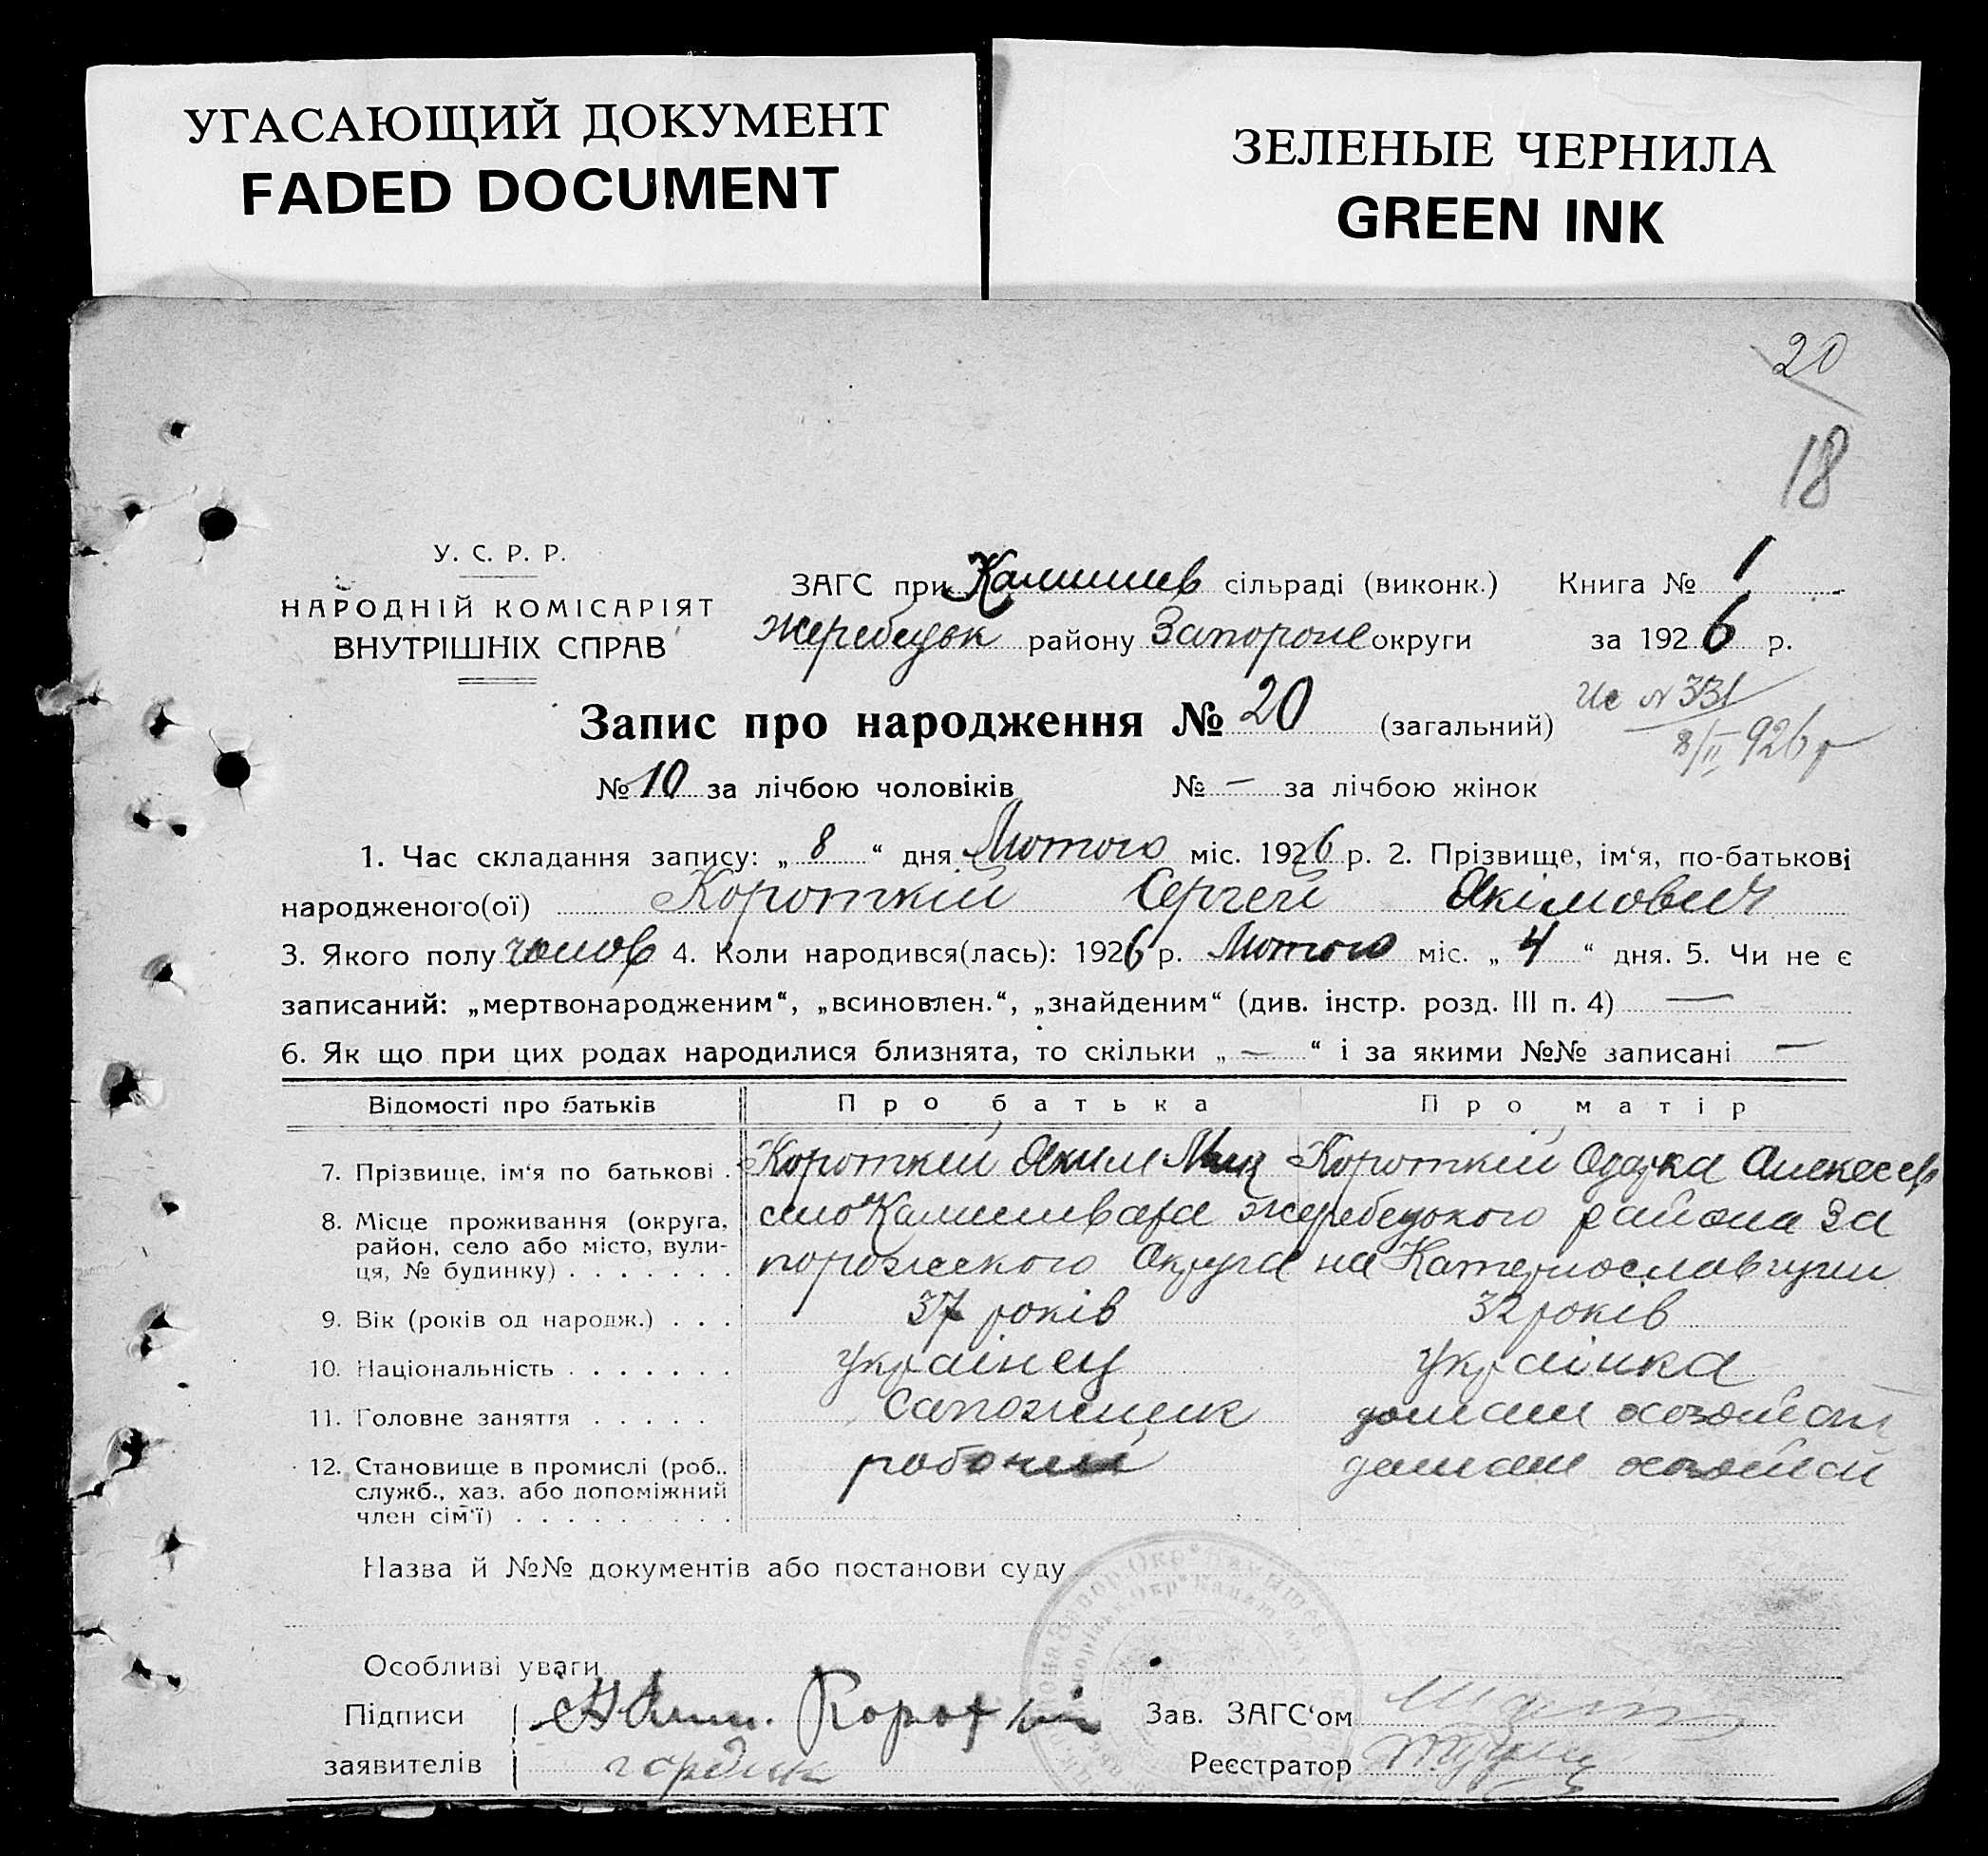 УГАСАЮЩИЙ ДОКУМЕНТ
FADED DOCUMENT
ЗЕЛЕНЫЕ ЧЕРНИЛА
GREEN INK
20
18
У. С. Р. Р.
НАРОДНІЙ КОМІСАРІЯТ
ВНУТРІШНІХ СПРАВ
ЗАГС при Камишев сільраді (виконк.) Книга № 1
Жеребецьк району Запорож округи за 1926 р.
Запис про народження № 20 (загальний)
№ 331
8/II 926 р
№ 10 за лічбою чоловіків № — за лічбою жінок
1. Час складання запису: „ 8 “ дня Лютого міс. 1926 р. 2. Прізвище, ім‘я, по-батькові
народженого(ої) Короткій Сергей Якімович
3. Якого полу чолов 4. Коли народився(лась): 1926 р. Лютого міс. „ 4 “ дня. 5. Чи не є
записаний: „мертвонародженим“, „всиновлен.“, „знайденим“ (див. інстр. розд. III п. 4) —
6. Як що при цих родах народилися близнята, то скільки „ — “ і за якими №№ записані —
Відомості про батьків Про батька Про матір
7. Прізвище, ім‘я по батькові . Короткій Яким Короткій Одарка Алексеев
8. Місце проживання (округа, село Камишеваха Жеребецького района За
район, село або місто, вули-
ця, № будинку) . . . . . . . порожского Округа на Катеринославщини
9. Вік (років од народж.) . . . 37 років 32 років
10. Національність . . . . . . . українец українка
11. Головне заняття . . . . . Сапожник домаш хозяйст
12. Становище в промислі (роб., рабочий домаш хозяйст
служб., хаз. або допоміжний
член сім‘ї) . . . . . . . . .
Назва й №№ документів або постанови суду
Особливі уваги
Підписи Аким. Короткій Зав. ЗАГС‘ом
заявителів Реєстратор